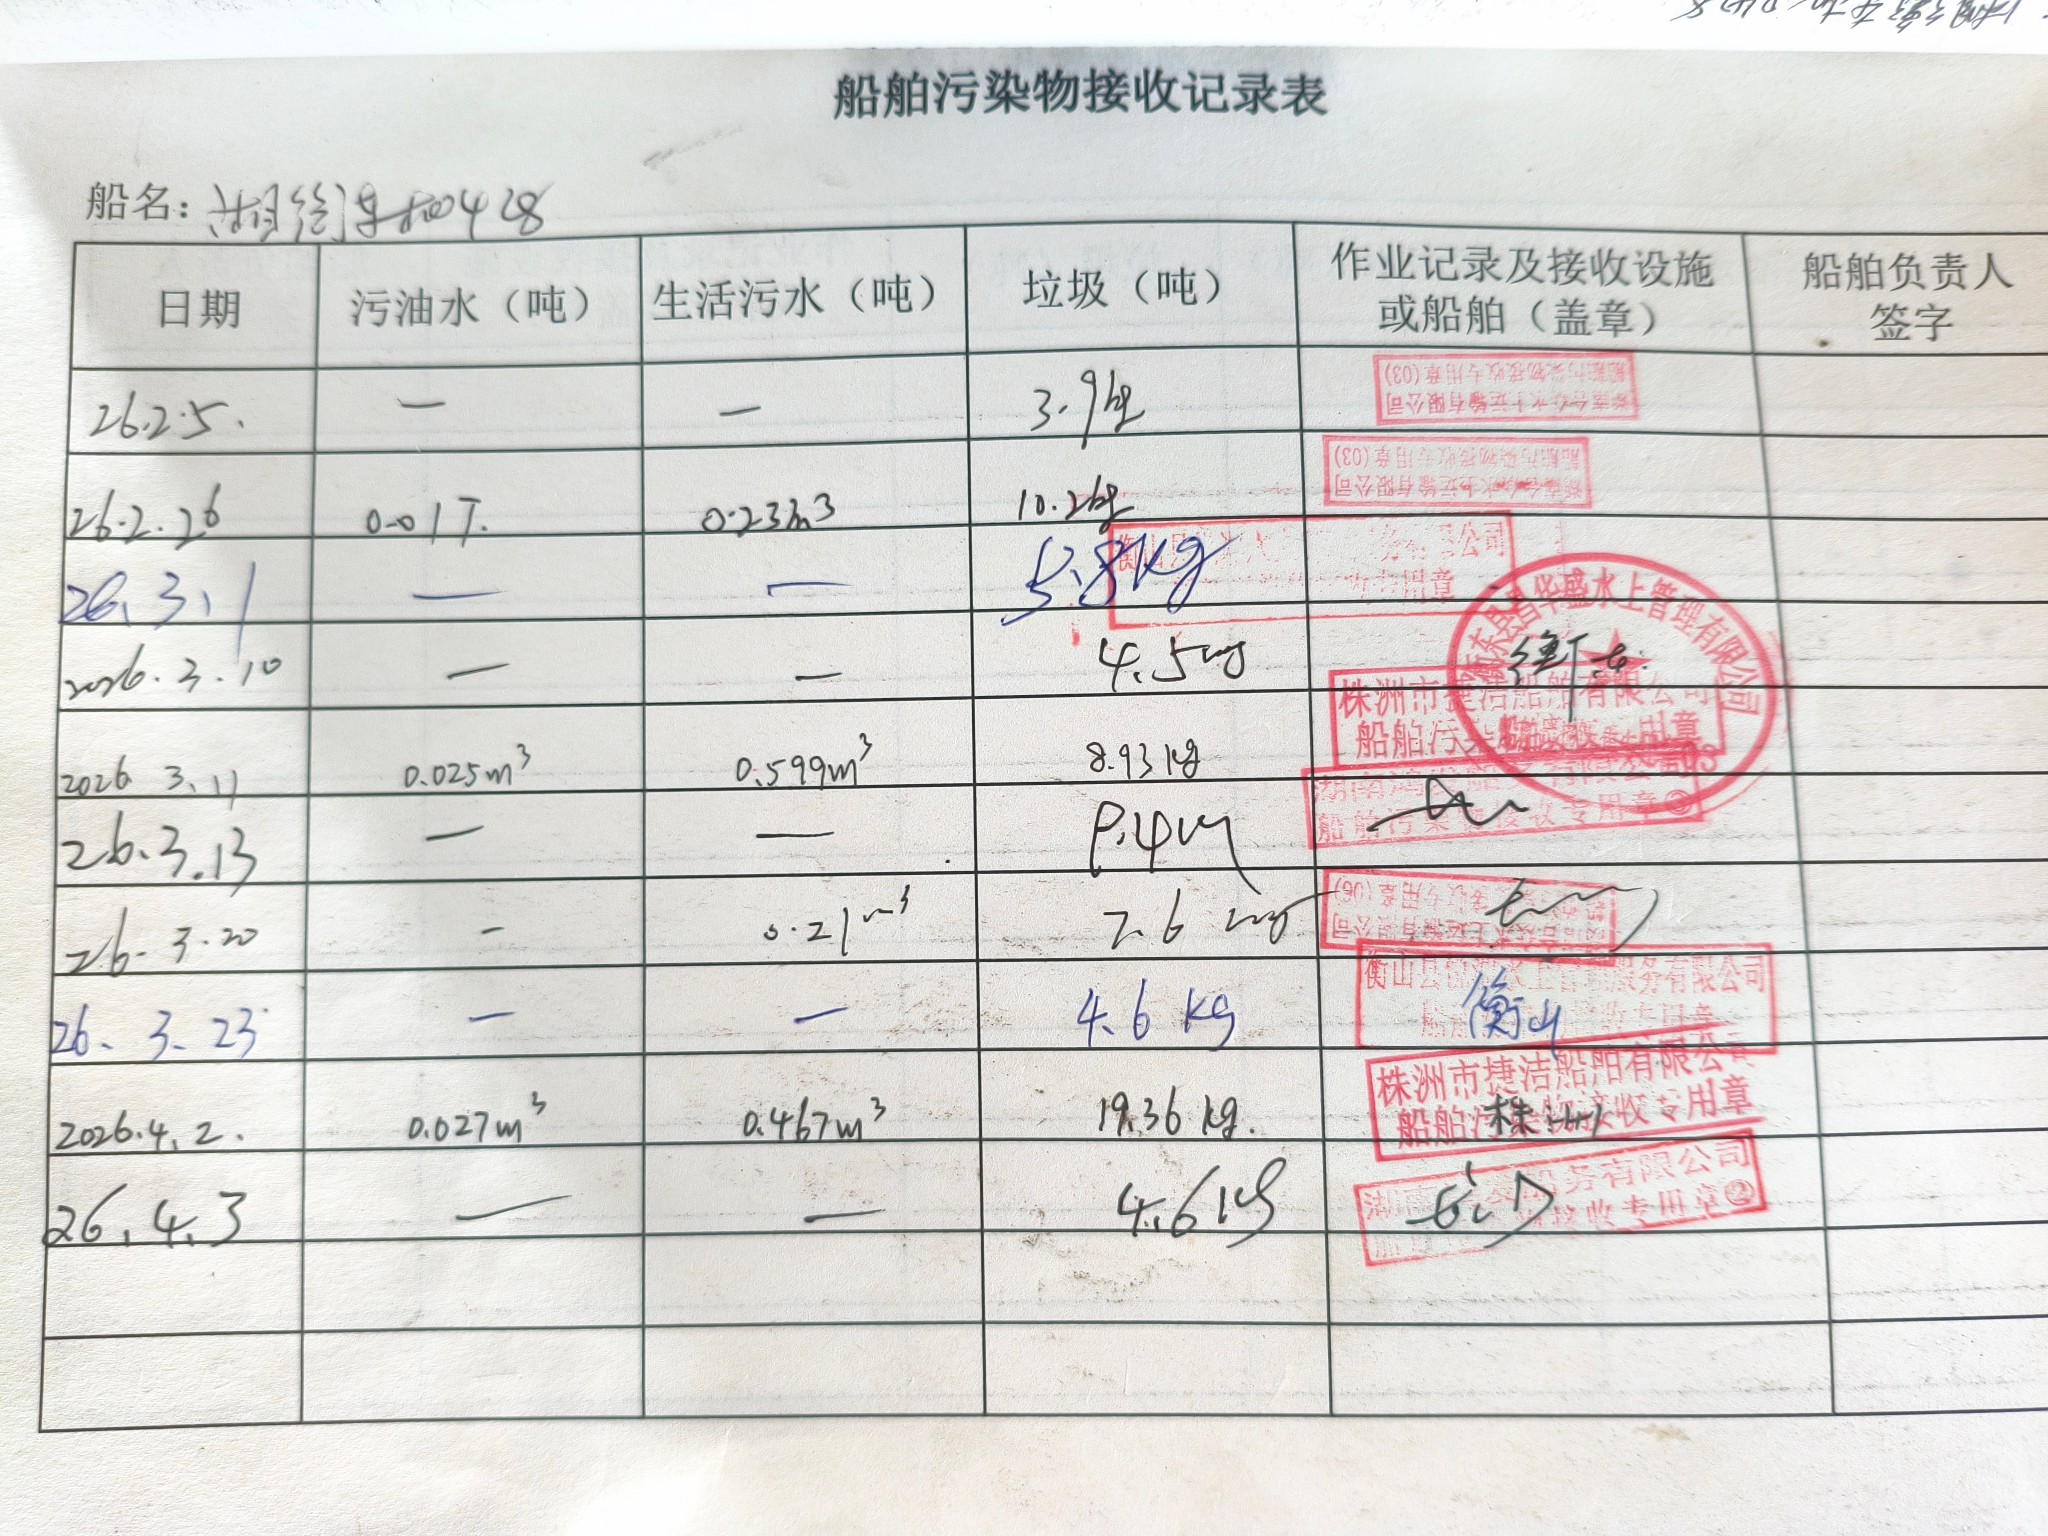 船舶污染物接收记录表
船名：湘衡东机0428
日期 污油水（吨） 生活污水（吨） 垃圾（吨） 作业记录及接收设施或船舶（盖章） 船舶负责人签字
26.2.5. — — 3.9kg 水上运输有限公司 船舶污染物接收专用章(03)
26.2.26 0.01T. 0.23m³ 10.2kg 水上运输有限公司 船舶污染物接收专用章(03)
26.3.1 — — 5.8kg 衡山县 务有限公司 专用章
2026.3.10 — — 4.5kg 华盛水上管理有限公司 衡东
2026 3.11 0.025m³ 0.599m³ 8.93kg 株洲市捷洁船舶有限公司 船舶污染物接收专用章
26.3.13 — — 湖南 有限公司 船舶污染物接收专用章③
26.3.20 — 0.21m³ 水上运输有限公司 专用章(06)
26.3.23 — — 4.6kg 衡山县 水上 服务有限公司 专用章 衡山
2026.4.2. 0.027m³ 0.467m³ 19.36kg. 株洲市捷洁船舶有限公司 船舶污染物接收专用章 株洲
26.4.3 — — 4.6kg 湖南 船务有限公司 接收专用章②